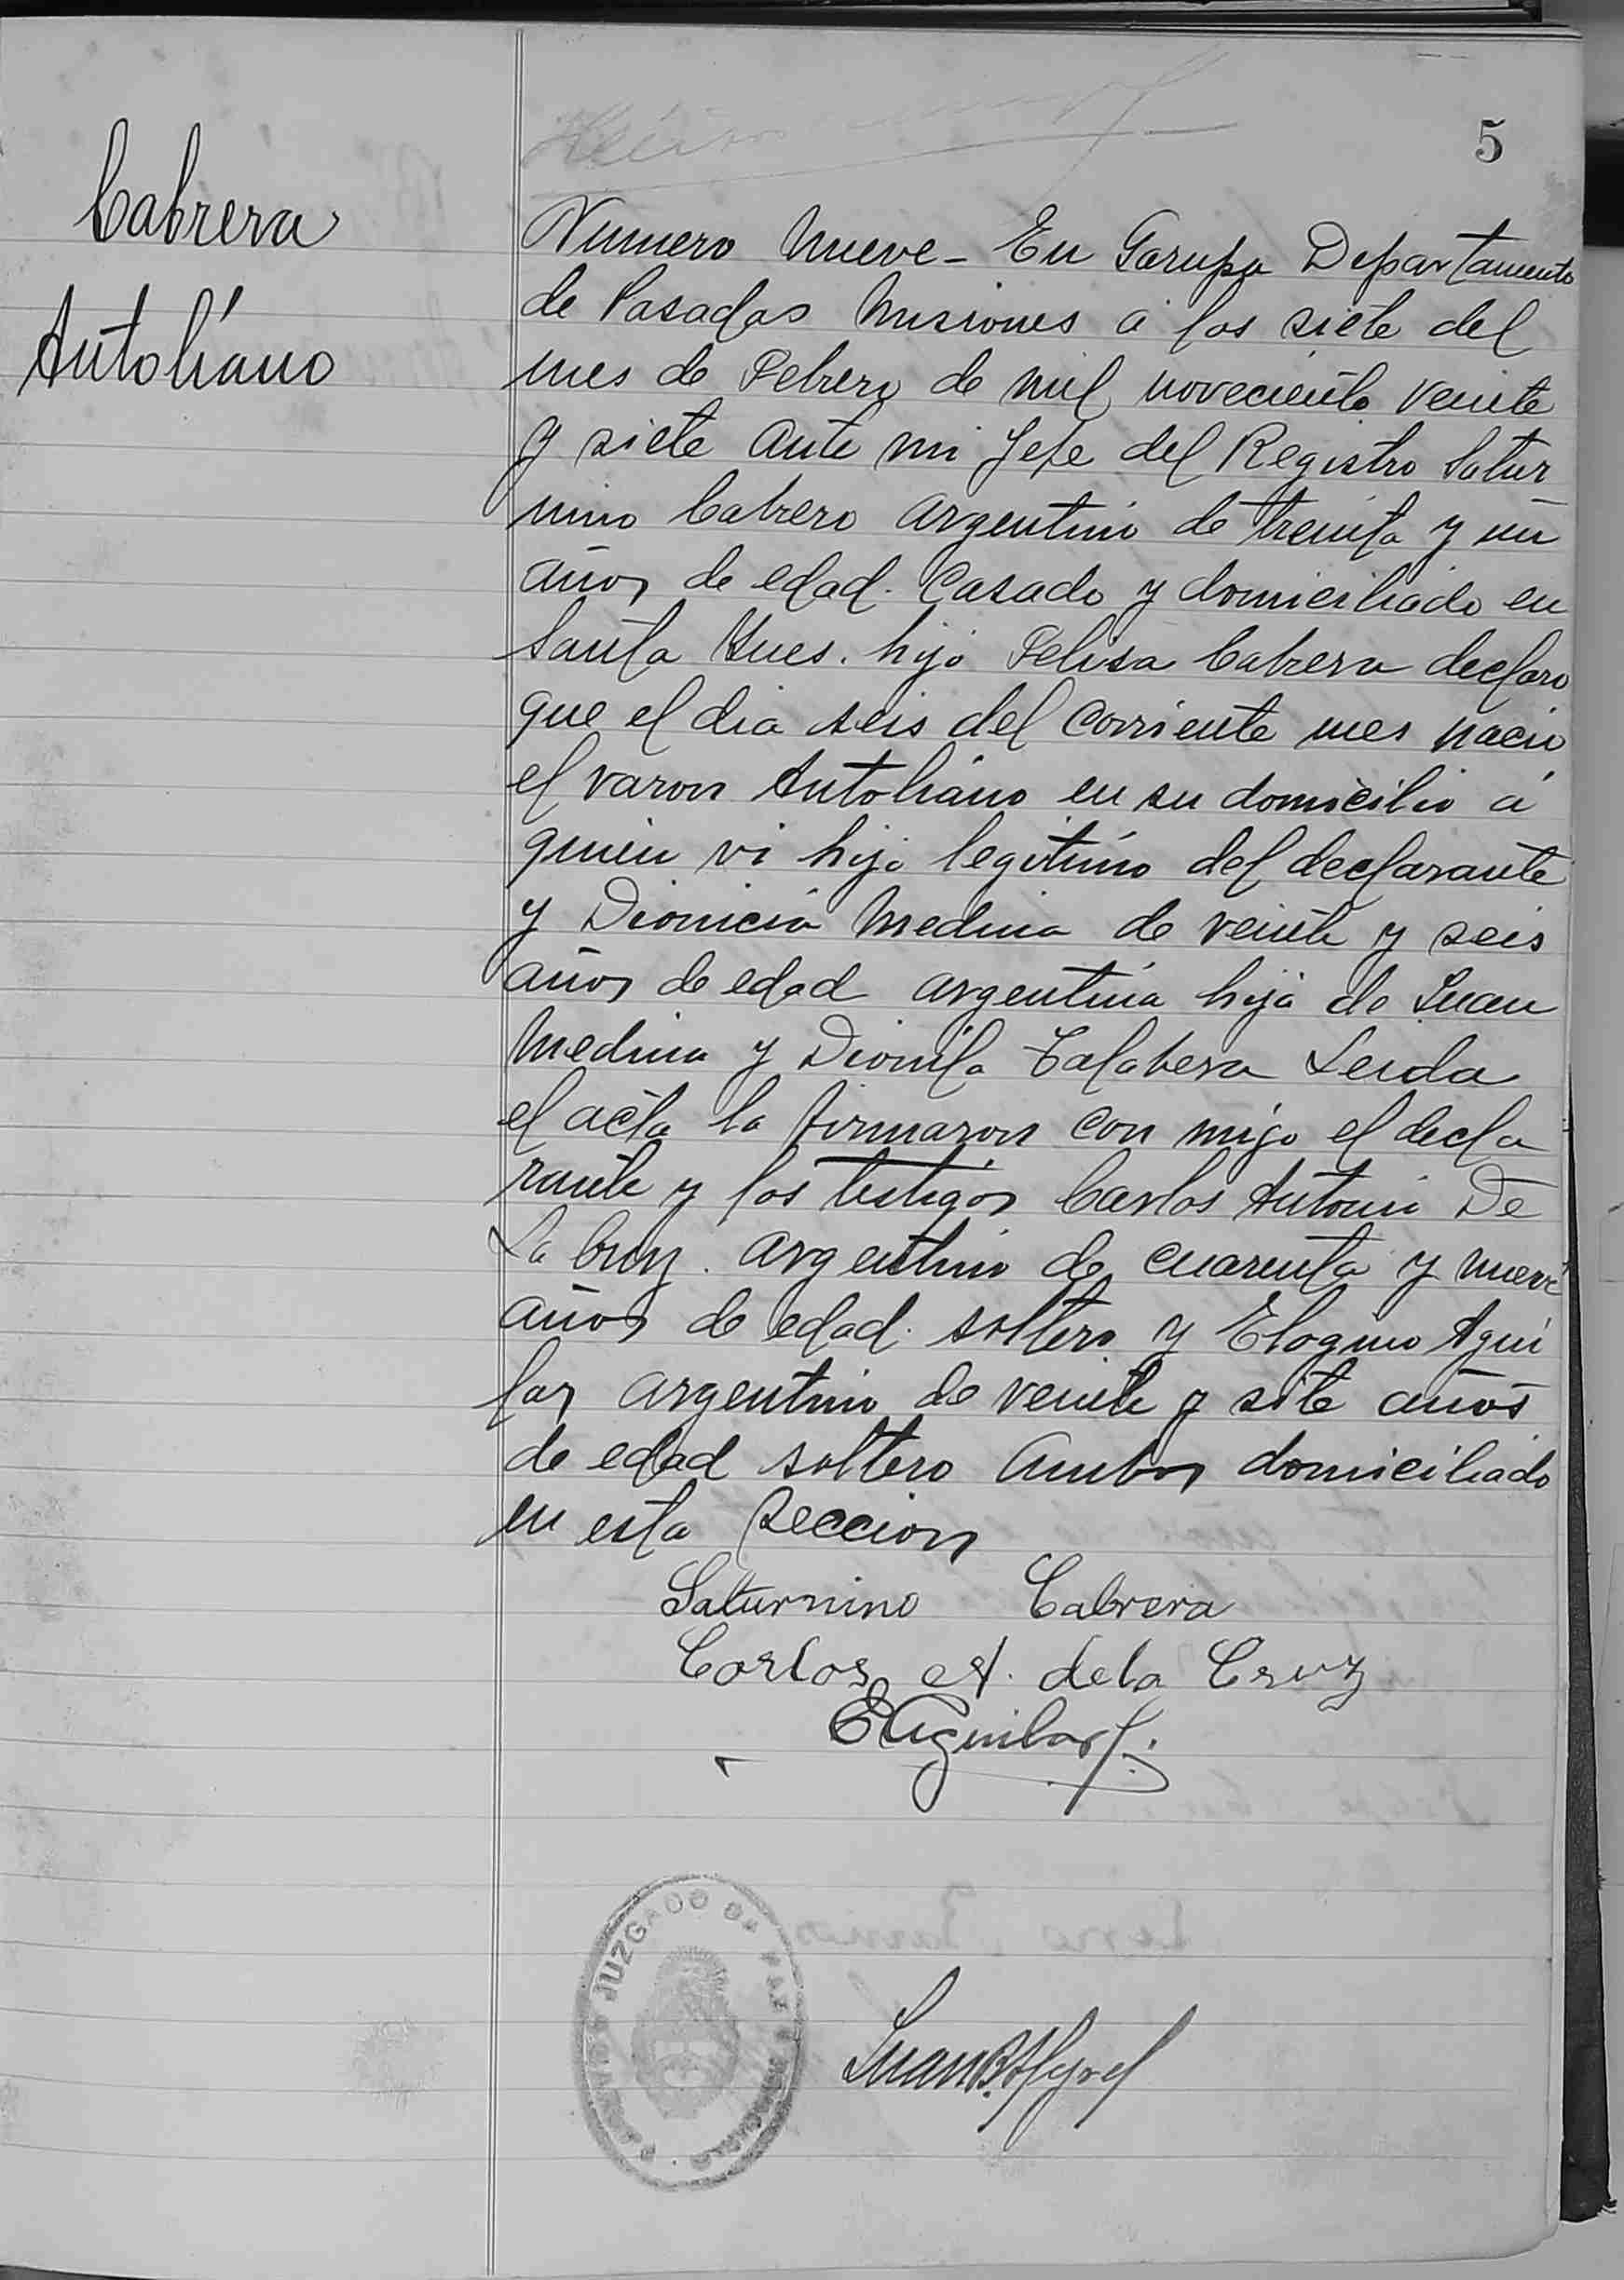 5
Cabrera
Autoliano
Numero Nueve - En Garupa Departamento
de Posadas Misiones á los siete del
mes de Febrero de mil noveciento veinte
y siete ante mi Jefe del Registro Satur
nino Cabrero argentino de treinta y un
años de edad. Casado y domiciliado en
Santa Ynes. hijo Felisa Cabrera declaro
que el dia seis del corriente mes nacio
el varon Autoliano en su domicilio á
quien vi hijo legitimo del declarante
y Dionicia Medina de veinte y seis
años de edad argentina hija de Juan
Medina y Dionila Talabera Leida
el acta la firmaron con migo el decla
rante y los testigos Carlos Antonio De
La Cruz. argentino de cuarenta y nueve
años de edad. soltero y Elogino Agui
lar argentino de veinte y site años
de edad soltero ambos domiciliado
en esta seccion
Saturnino Cabrera
Carlos A. dela Cruz
E Aguilar
JUZGADO DE PAZ
Juan B.